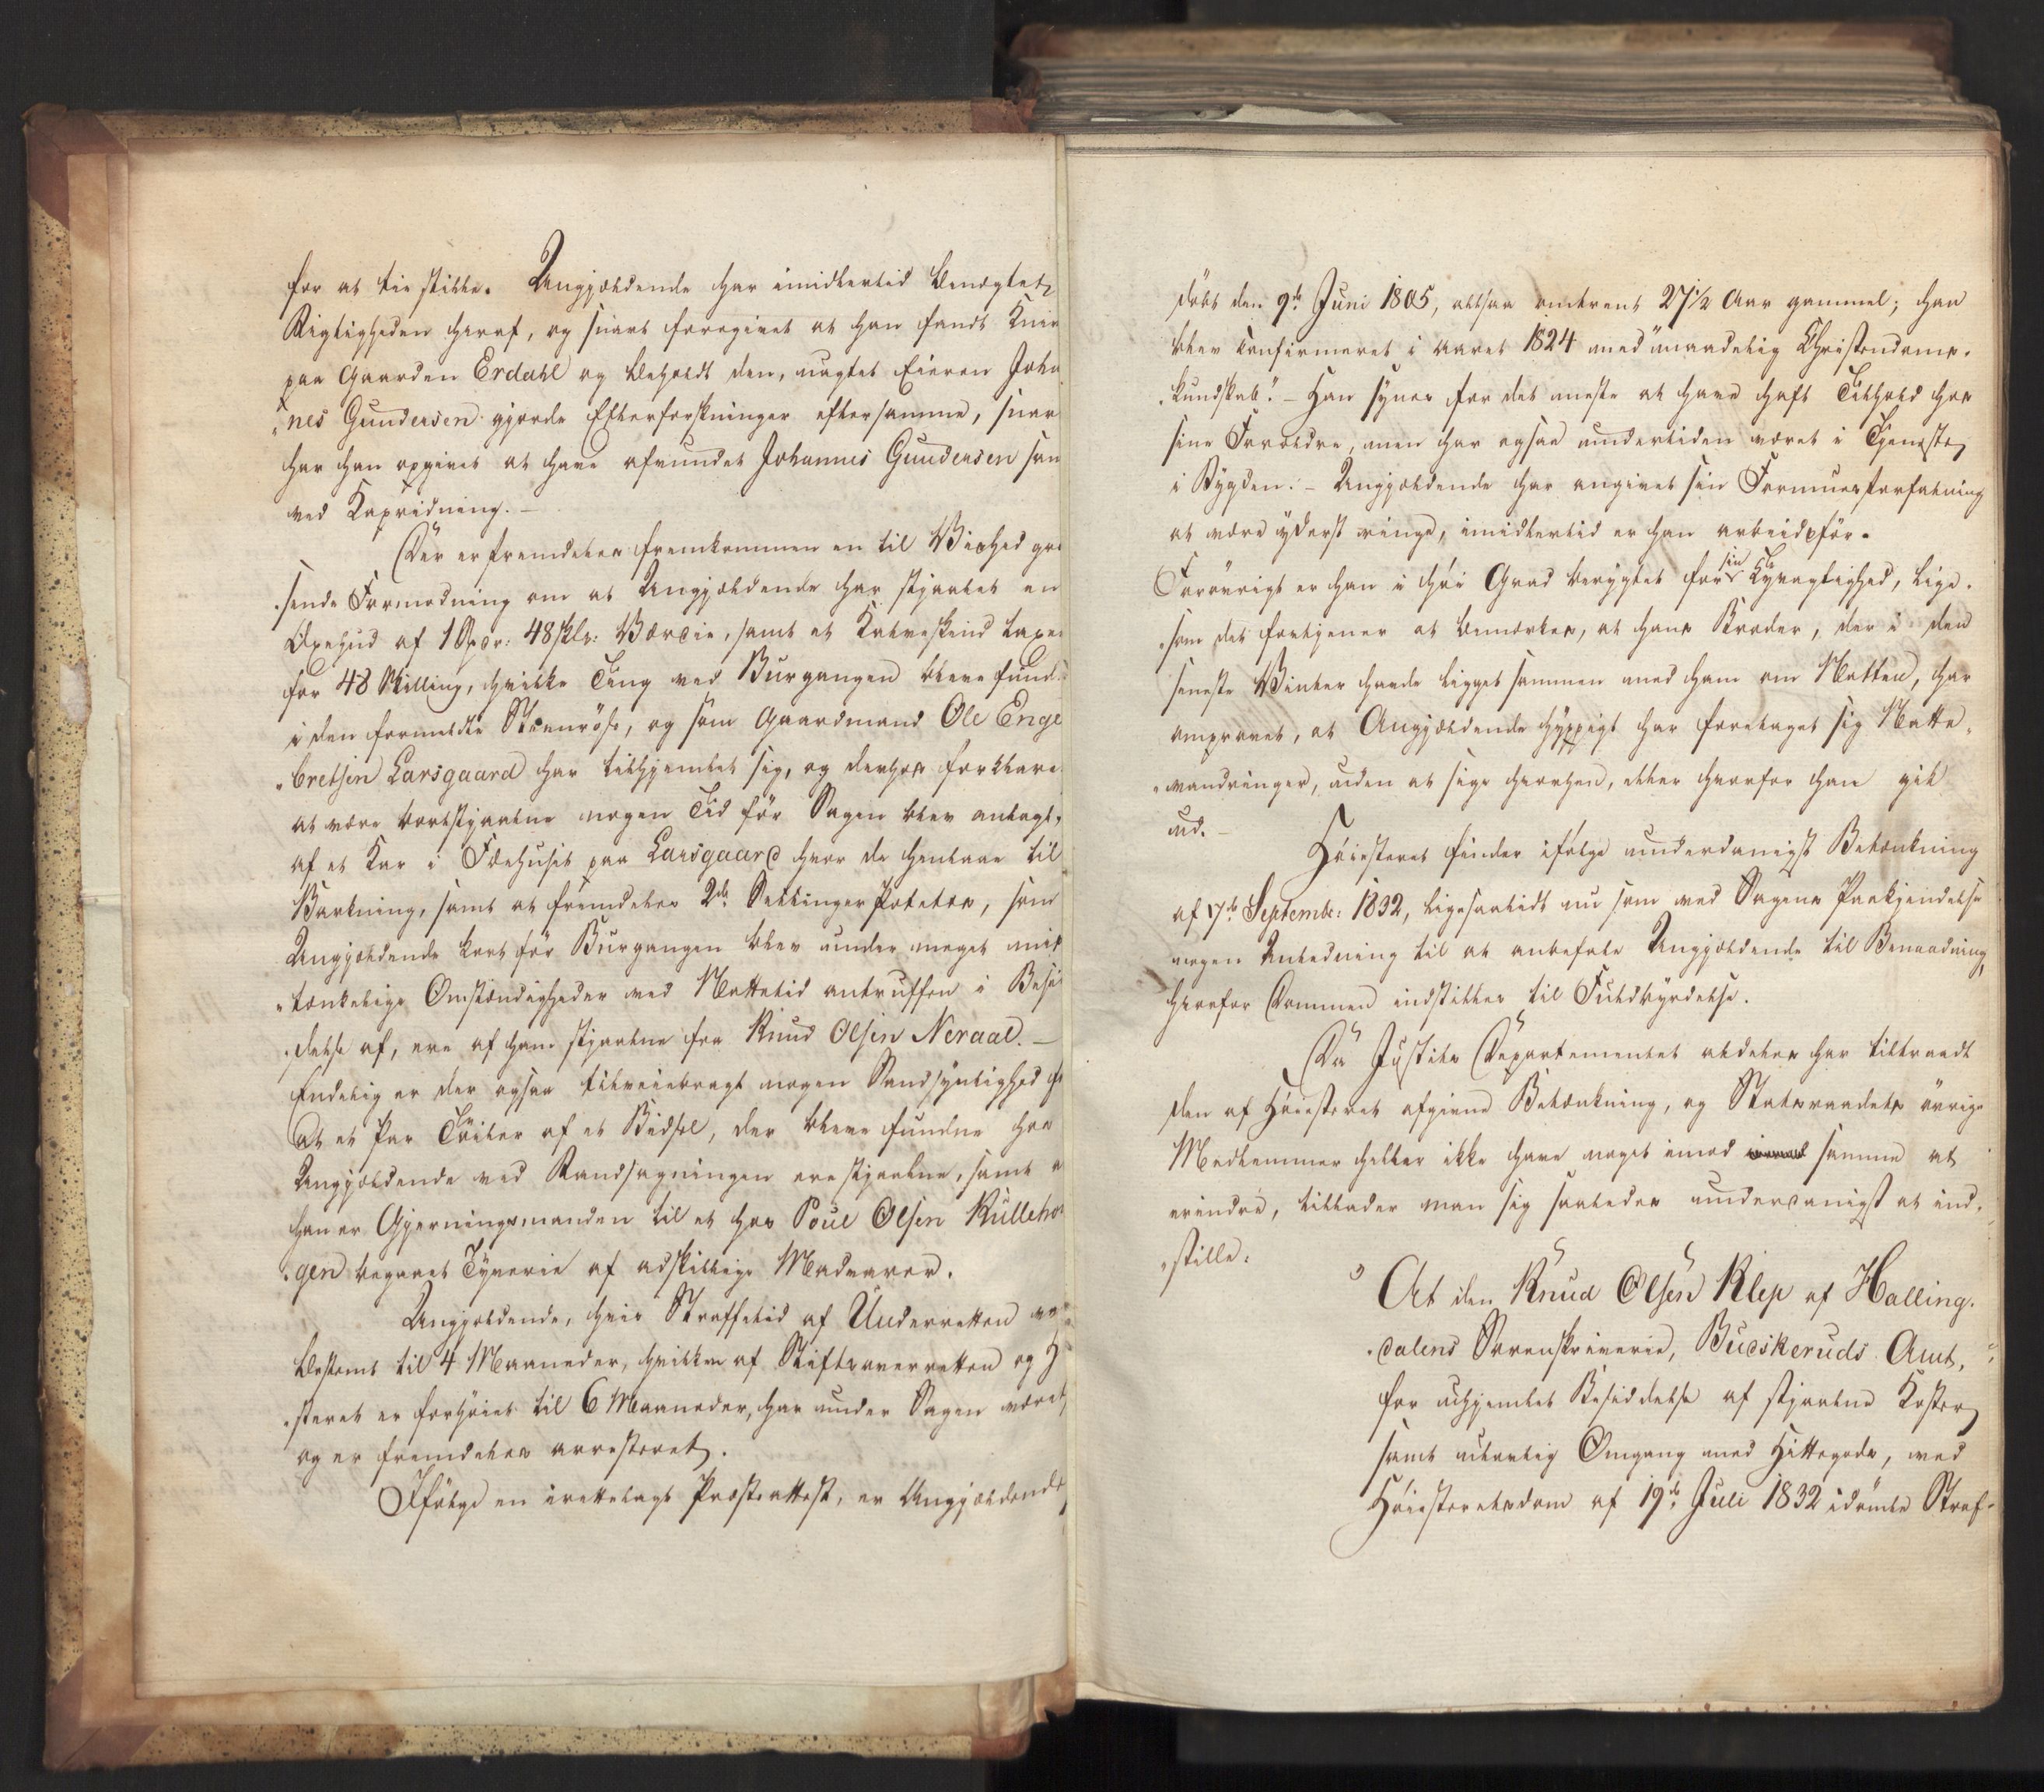 for at tie stille. Angjældende har imidlertid benægtet
Rigtigheden heraf, og snart foregivet at han fandt Kniv
paa Gaarden Erdahl og beholdt den, uagtet Eieren Joha
„nes Gundersen gjorde Efterforskninger efter samme, snar
har han opgivet at have afvundet Johannes Gundersen sam
ved Kapridning. –
Der er fremdeles fremkommen en til Vished græ
„sende Formodning om at Angjældende har stjaalet en
Oxehud af 1 Spdr: 48 skls: Værdie, samt et Kalveskind taxe
for 48 Skilling, hvilke Ting ved Burgangen bleve fund
i den formeldte Steenröse, og som Gaardmand Ole Enge
„bretsen Larsgaard har tilhjemlet sig, og derhos forklare
at være bortstjaalne nogen Tid för Sagen blev anlagt,
af et Kar i Fæehuset paa Larsgaard hvor de henlaae til
Barkning, samt at fremdeles 2de Settinger Poteter, som
Angjældende kort för Burgangen blev under meget mis
„tænkelige Omstændigheder ved Nattetid antruffen i Besid
„delse af, ere af ham stjaalne fra Knud Olsen Neraal. –
Endelig er der ogsaa tilveiebragt nogen Sandsynlighed f
at et Par Töiler af et Bidsel, der bleve fundne hos
Angjældende ved Randsagningen ere stjaalne, samt a
han er Gjerningsmanden til et hos Poul Olsen Kulleho
„gen begaaet Tyverie af adskillige Madvarer.
Angjældende, hvis Straffetid af Underretten va
bestemt til 4 Maaneder, hvilken af Stiftsoverretten og H
„steret er forhöiet til 6 Maaneder, har under Sagen været
og er fremdeles arresteret.
Ifölge en irettelagt Præsteattest, er Angjældende
döbt den 9de Juni 1805, altsaa omtrent 27½ Aar gammel; han
blev confirmeret i Aaret 1824 med „maadelig Christendoms„
„kundskab“. – Han synes for det meste at have haft Tilhold hos
sine Forældre, men har ogsaa undertiden været i Tjeneste
i Bygden. – Angjældende har angivet sin Formuesforfatning
at være yderst ringe, imidlertid er han arbeidsför.
Forövrigt er han i höi Grad berygtet for sin Tyvagtighed, lige„
„som det fortjener at bemærkes, at hans Broder, der i den
seneste Vinter havde ligget sammen med ham om Natten, har
omprovet, at Angjældende hyppigt har foretaget sig Natte„
„vandringer, uden at sige hvorhen, eller hvorfor han gik
ud. –
Höiesteret finder ifölge underdanigst Betænkning
af 17de Septembr: 1832, ligesaalidt nu som ved Sagens Paakjendelse
nogen Anledning til at anbefale Angjældende til Benaadning,
hvorfor Dommen indstilles til Fuldbyrdelse.
Da Justits Departementet aldeles har tiltraadt
den af Höiesteret afgivne Betænkning, og Statsraadets övrige
Medlemmer heller ikke have noget imod samme at
erindre, tillader man sig saaledes underdanigst at ind„
„stille:
At den Knud Olsen Klep af Halling„
„dalens Sorenskriverie, Budskeruds Amt,
for uhjemlet Besiddelse af stjaalne Koster
samt ulovlig Omgang med Hittegods, ved
Höiesteretsdom af 19de Juli 1832 idömte Straf„